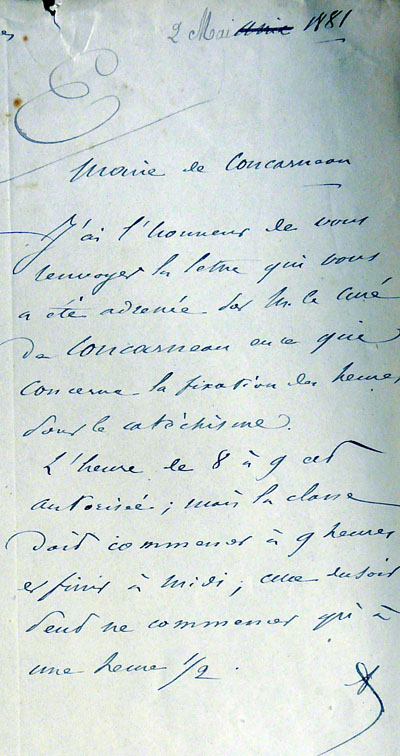 2 Mai 1881
E
Maire de Concarneau
J'ai l'honneur de vous
renvoyer la lettre qui vous
a été adressée par M. le Curé
de Concarneau en ce qui
concerne la fixation des heures
pour le catéchisme.
L'heure de 8 à 9 est
autorisée ; mais la classe
doit commencer à 9 heures
et finir à midi ; celle du soir
peut ne commencer qu'à
une heure 1/2.